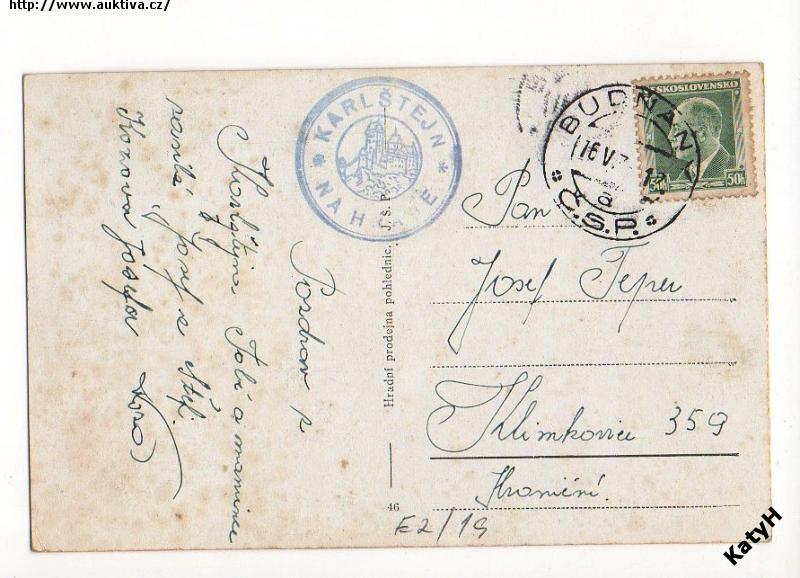 http://www.auktiva.cz/
KARLŠTEJN
NA HRADĚ
ČESKOSLOVENSKO
50h 50h
BUDŇANY
16.V.
a
Č.S.P.
Pozdrov z
Karlštejna Tobě a mamince
zasílá Josef s
Josefa
Hradní prodejna pohlednic, J. Š. P.
46
Pan
Josef Teper
Klimkovice 359
E2/19
KatyH